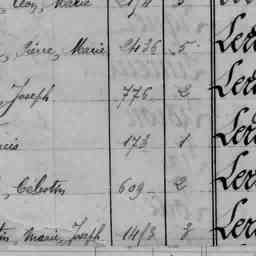 Léon, Marie
Pierre, Marie 2436 5 Ler
Joseph 776 2 Ler
cis 173 1 Ler
Célestin 609 2 Ler
tin Marie, Joseph 1413 3 Ler